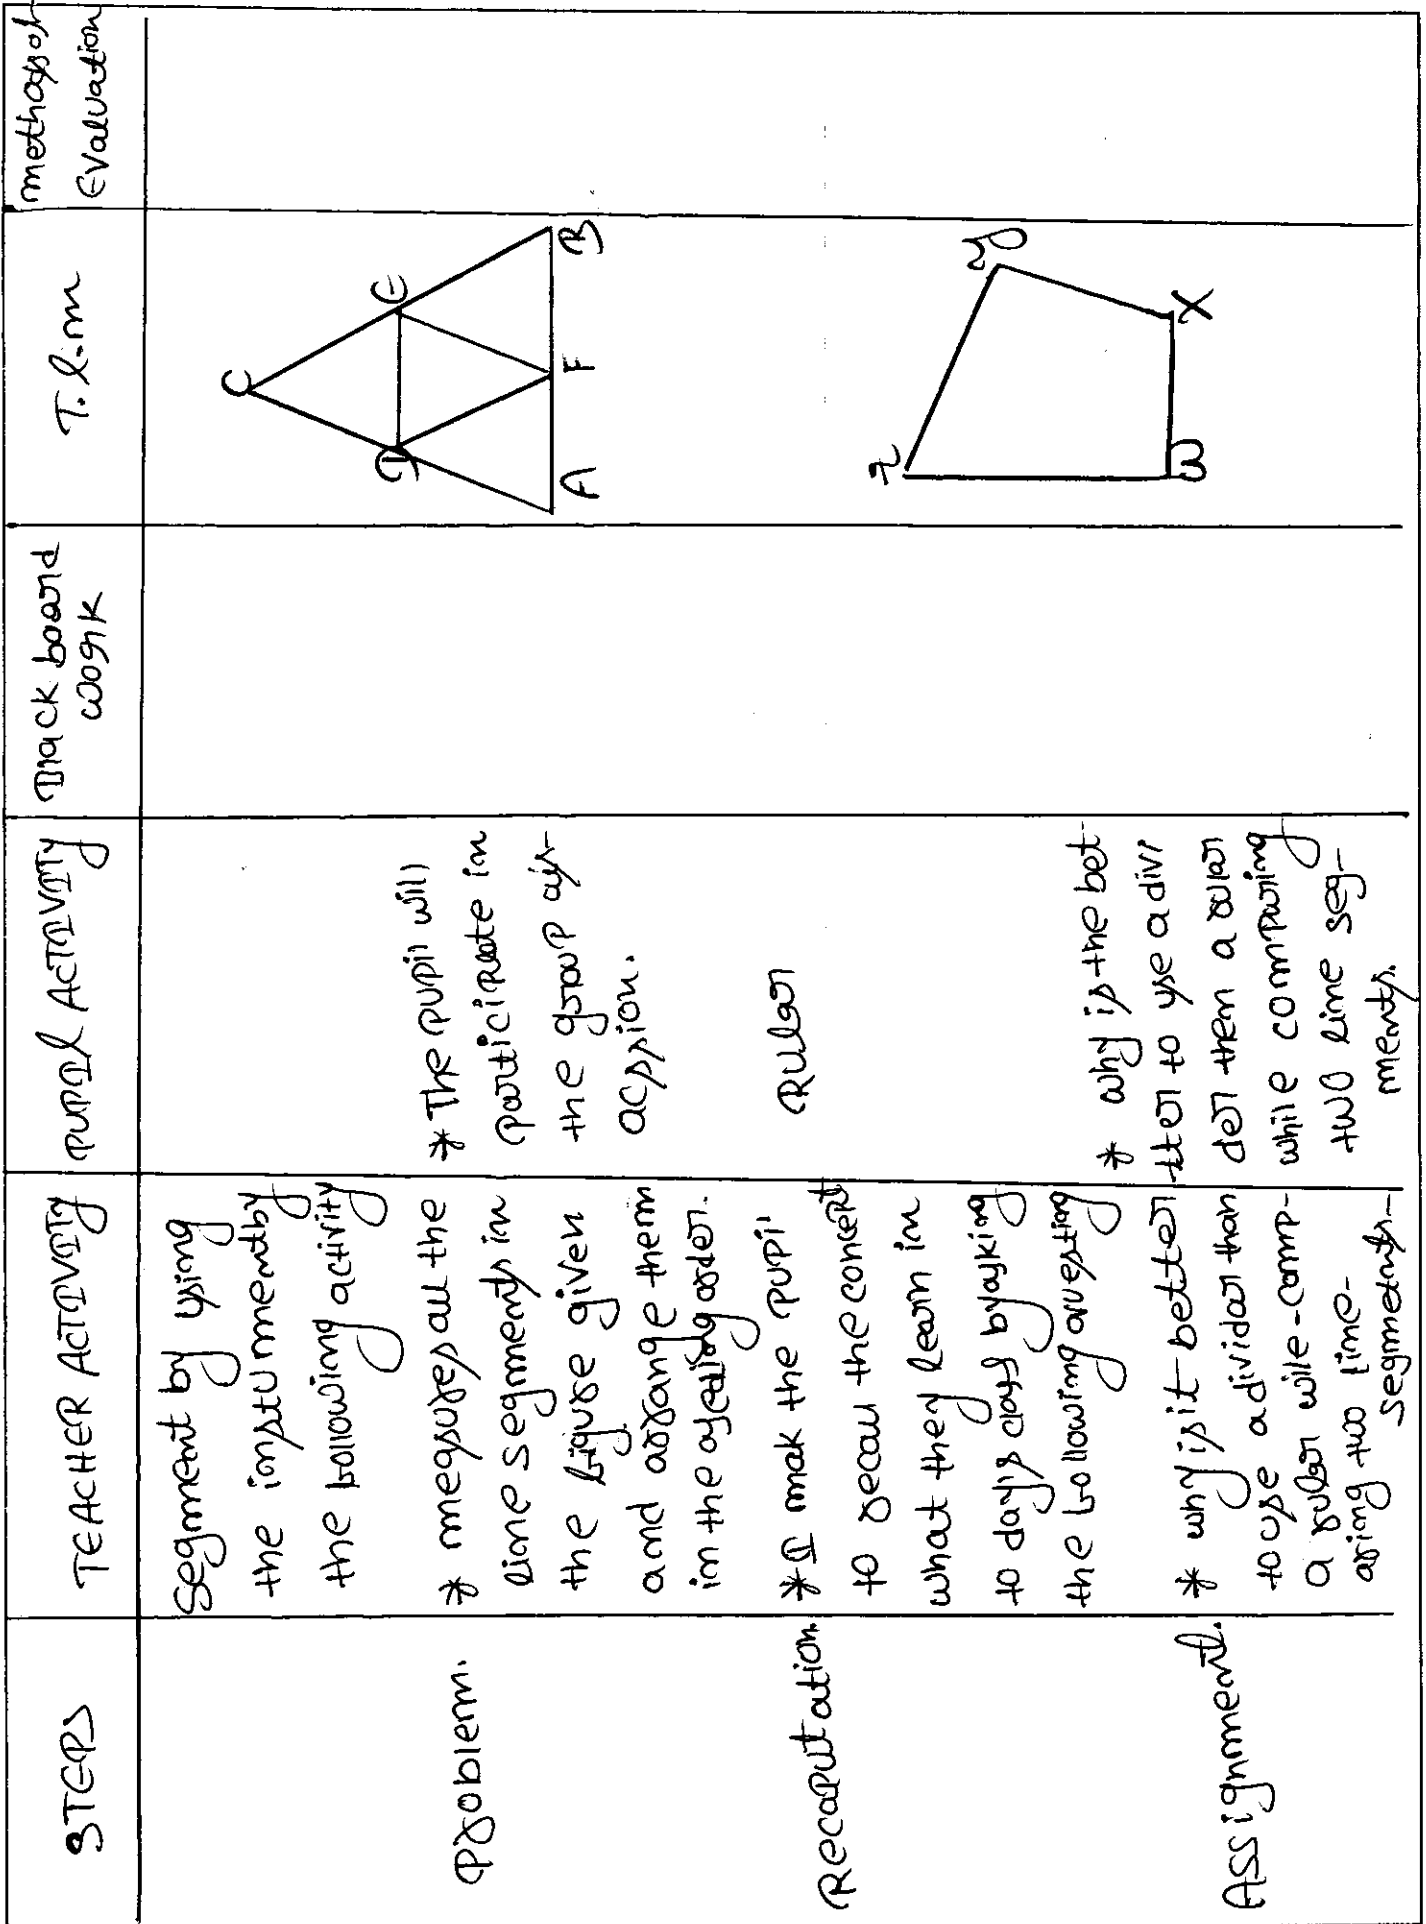 STEPS
TEACHER ACTIVITY
PUPIL ACTIVITY
Black board
work
T.l.m
methods of
Evaluation
Segment by using
the instumentby
the following activity
Problem.
* megsures all the
line segments in
the figure given
and arrange them
in the order.
* The pupil will
participate in
the group dis-
acssion.
C
D
E
A
F
B
Recaputation.
* I mak the pupil
to recall the concept
what they learn in
to day's class byasking
the following questing
Rular
Assignment.
* why is it better
to use a dividor than
a rular wile-comp-
aring two line-
segments-
* why is the bet
tter to use a divi
der them a rular
while comparing
two line seg-
ments.
z
y
W
X